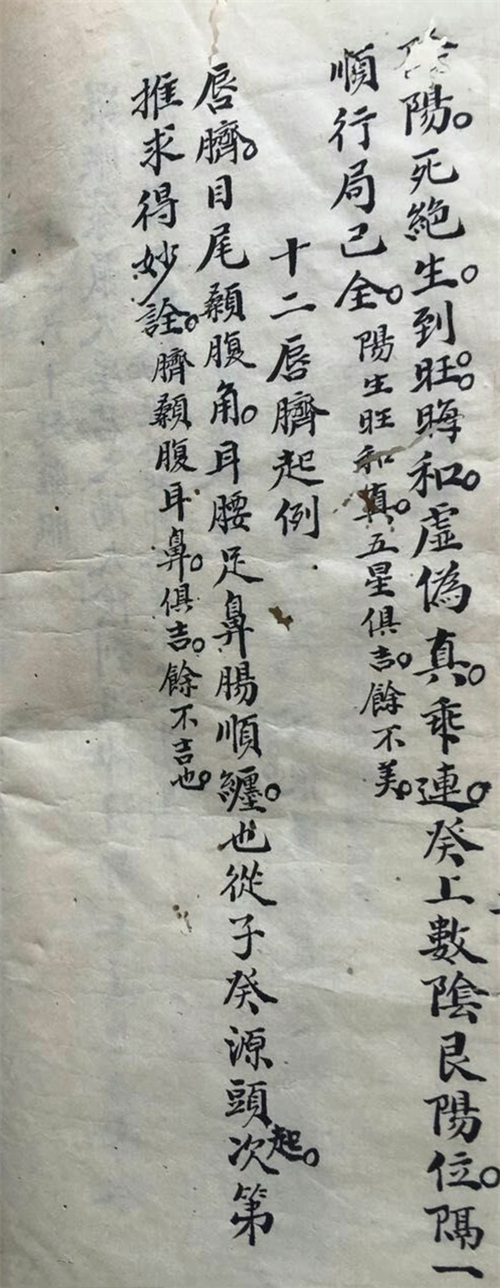 陰陽。死絶生。到旺。晦和。虛偽真。乘連。癸上數陰艮陽位。隔一
順行局已全。陽生旺和真。五星俱吉。餘不美。
十二唇臍起例
唇臍。目尾顙腹角。耳腰足鼻腸順纏。也從子癸源頭起。次第
推求得妙詮。臍顙腹耳鼻。俱吉。餘不吉也。